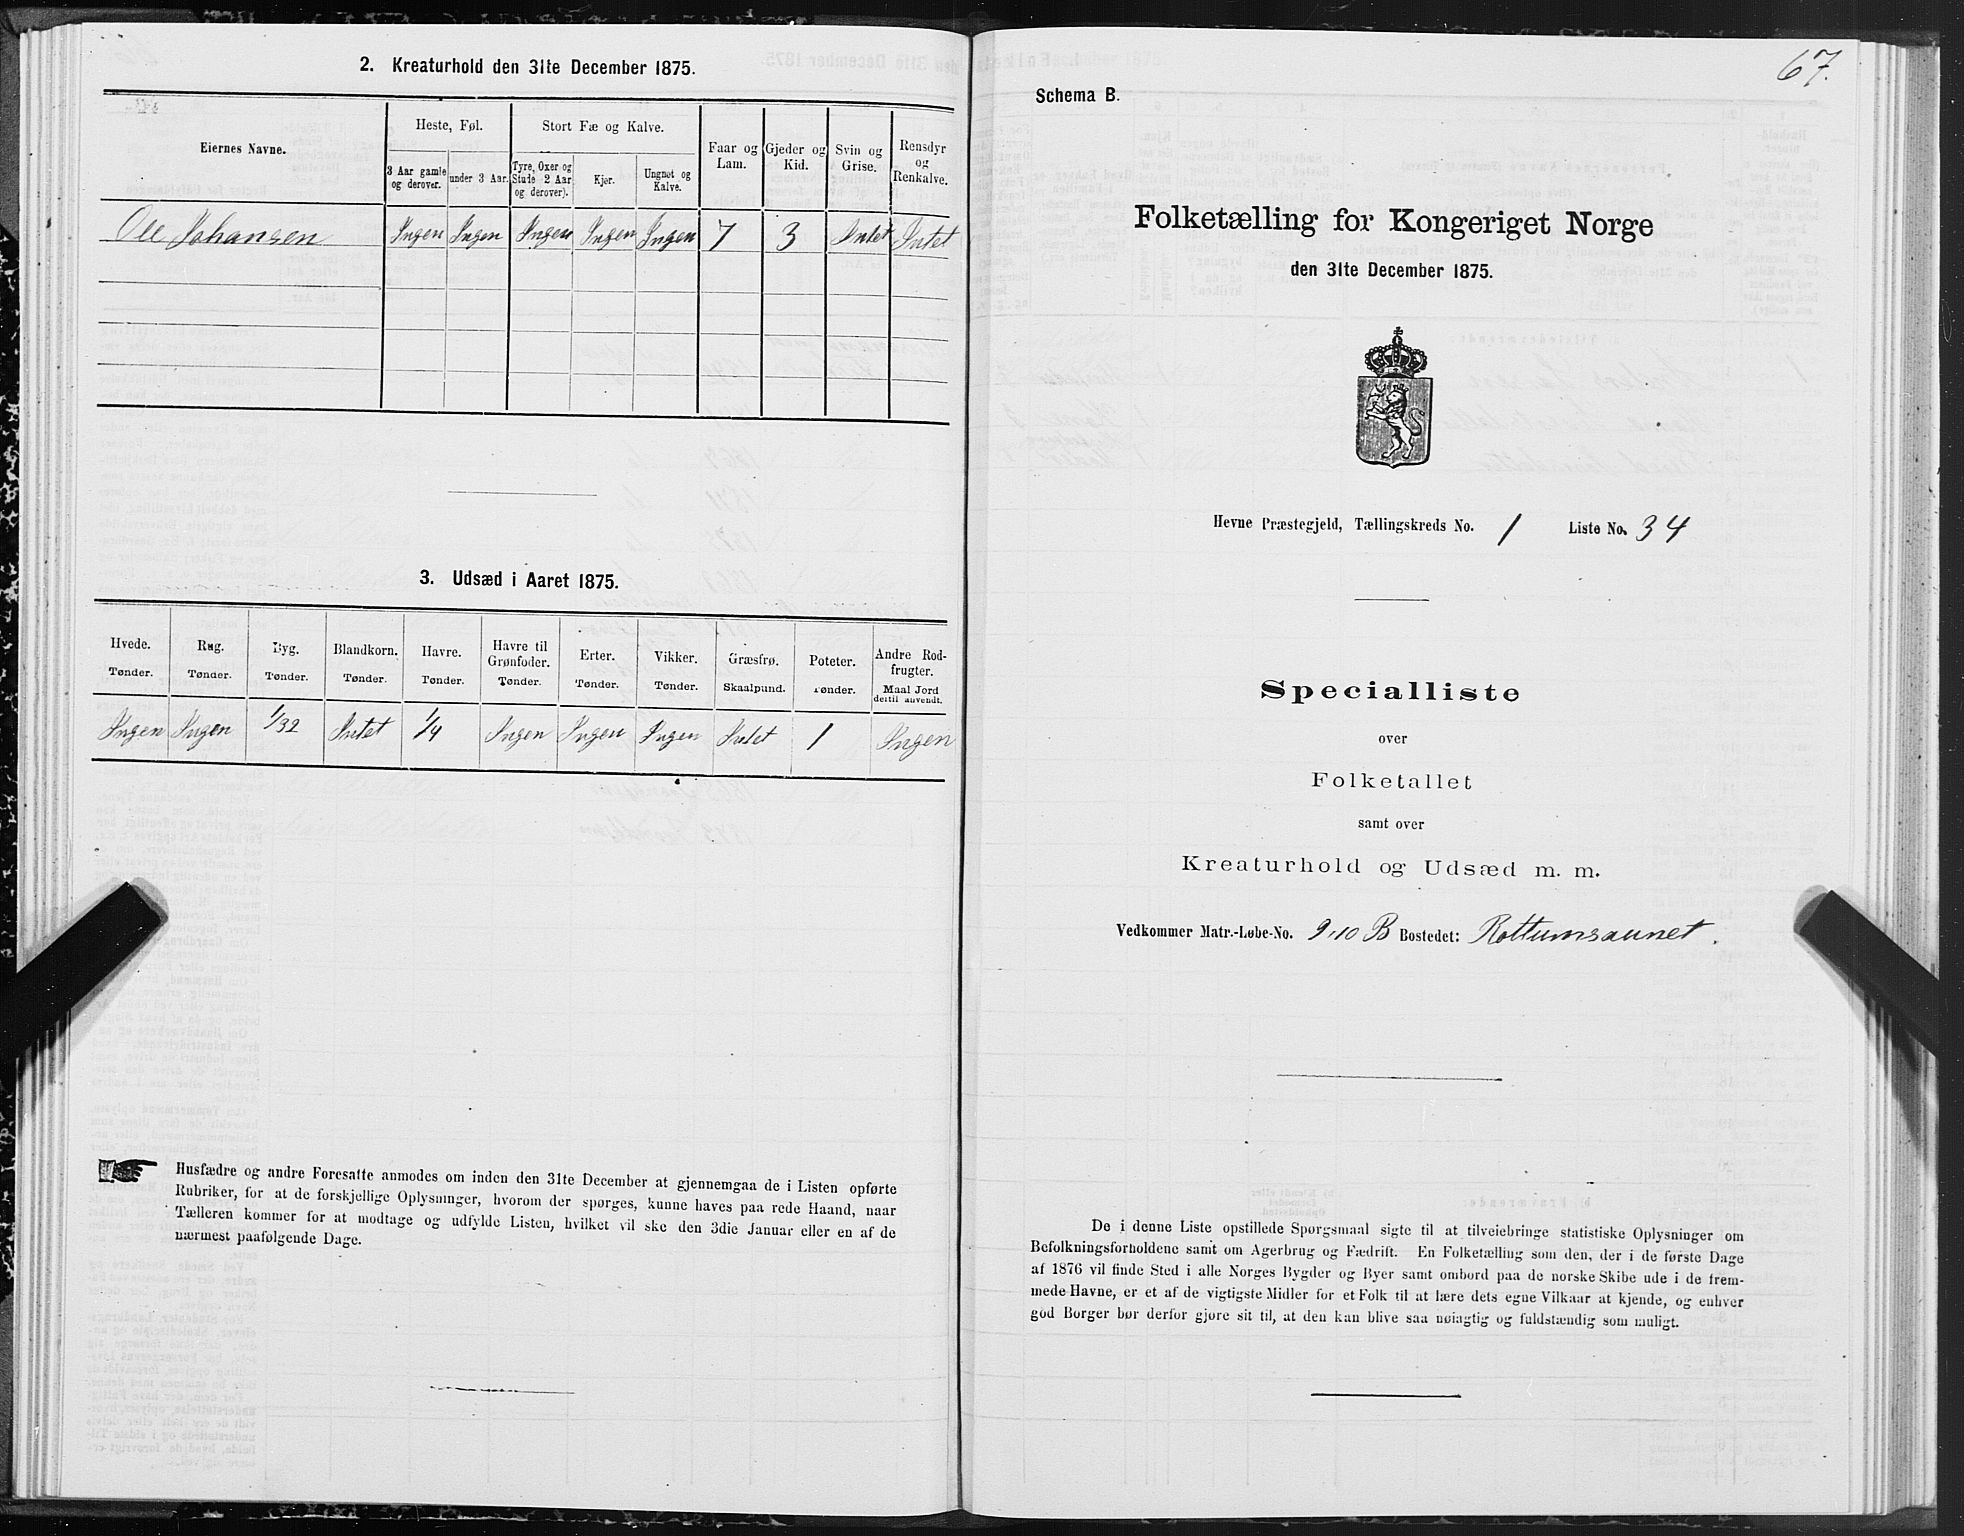 2. Kreaturhold den 31te December 1875.
Eiernes Navne.
Heste, Føl.
Stort Fæ og Kalve.
Faar og Lam.
Gjeder og Kid.
Svin og Grise.
Rensdyr og Renkalve.
3 Aar gamle og derover.
under 3 Aar.
Tyre, Oxer og Stude 2 Aar og derover).
Kjør.
Ungnøt og Kalve.
Ole Johansen Ingen Ingen Ingen Ingen Ingen 7 3 Intet Intet
3. Udsæd i Aaret 1875.
Hvede. Rug. Byg. Blandkorn. Havre. Havre til Grønfoder. Erter. Vikker. Græsfrø. Poteter. Andre Rodfrugter.
Tønder. Tønder. Tønder. Tønder. Tønder. Tønder. Tønder. Tønder. Skaalpund. Tønder. Maal Jord dertil anvendt.
Ingen Ingen 1/32 Intet 1/4 Ingen Ingen Ingen Intet 1 Ingen
Husfædre og andre Foresatte anmodes om inden den 31te December at gjennemgaa de i Listen opførte
Rubriker, for at de forskjellige Oplysninger, hvorom der spørges, kunne haves paa rede Haand, naar
Tælleren kommer for at modtage og udfylde Listen, hvilket vil ske den 3die Januar eller en af de
nærmest paafølgende Dage.
67.
Schema B.
Folketælling for Kongeriget Norge
den 31te December 1875.
Hevne Præstegjeld, Tællingskreds No. 1 Liste No. 34
Specialliste
over
Folketallet
samt over
Kreaturhold og Udsæd m. m.
Vedkommer Matr.-Løbe-No. 9,10 B Bostedet: Rottumsaunet.
De i denne Liste opstillede Spørgsmaal sigte til at tilveiebringe statistiske Oplysninger om
Befolkningsforholdene samt om Agerbrug og Fædrift. En Folketælling som den, der i de første Dage
af 1876 vil finde Sted i alle Norges Bygder og Byer samt ombord paa de norske Skibe ude i de frem-
mede Havne, er et af de vigtigste Midler for et Folk til at lære dets egne Vilkaar at kjende, og enhver
god Borger bør derfor gjøre sit til, at den kan blive saa nøiagtig og fuldstændig som muligt.